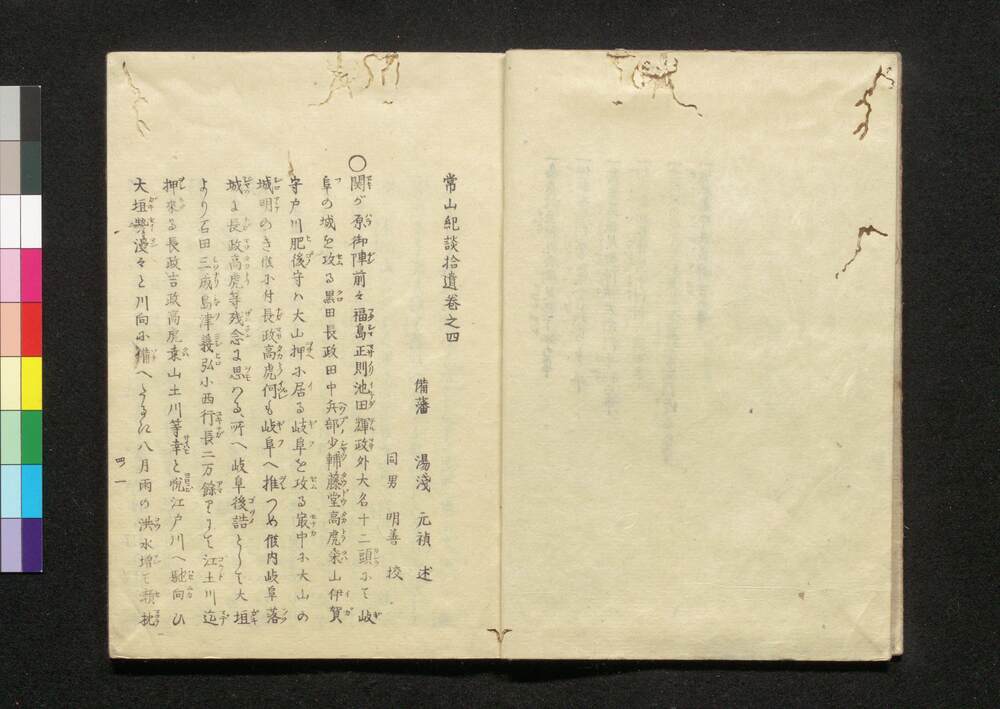 常山紀談拾遺卷之四
備藩 湯淺 元禎 述
同男 明善 校
○関ガ原御陣前々福島正則池田輝政外大名十二頭にて岐
阜の城を攻る黒田長政田中兵部少輔藤堂高虎桑山伊賀
守戸川肥後守ハ大山押に居る岐阜を攻る最中に大山の
城明のき候に付長政高虎何も岐阜へ推つめ候内岐阜落
城に長政高虎等残念に思ハる所へ岐阜後詰として大垣
より石田三成島津義弘小西行長二万餘にて江土川迄
押來る長政吉政高虎桑山土川等幸と悦江戸川へ馳向ひ
大垣勢漫々と川向に備へたるに八月雨の洪水増て頬枕
四ノ一